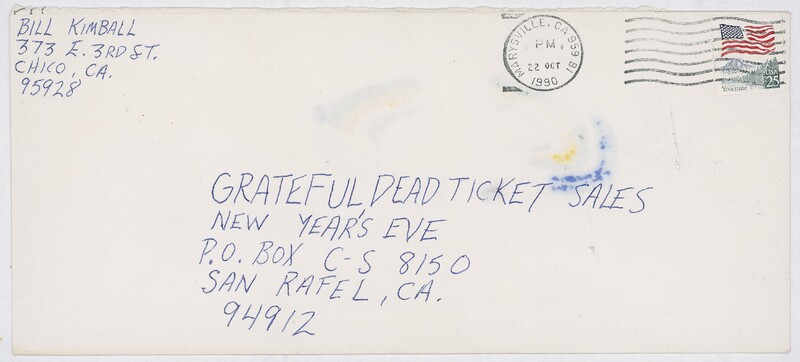 BILL KIMBALL
373 E. 3RD ST.
CHICO, CA.
95928
MARYSVILLE, CA 95981
PM
22 OCT
1990
USA
25
Yosemite
GRATEFUL DEAD TICKET SALES
NEW YEAR'S EVE
P.O. BOX C-S 8150
SAN RAFEL, CA.
94912